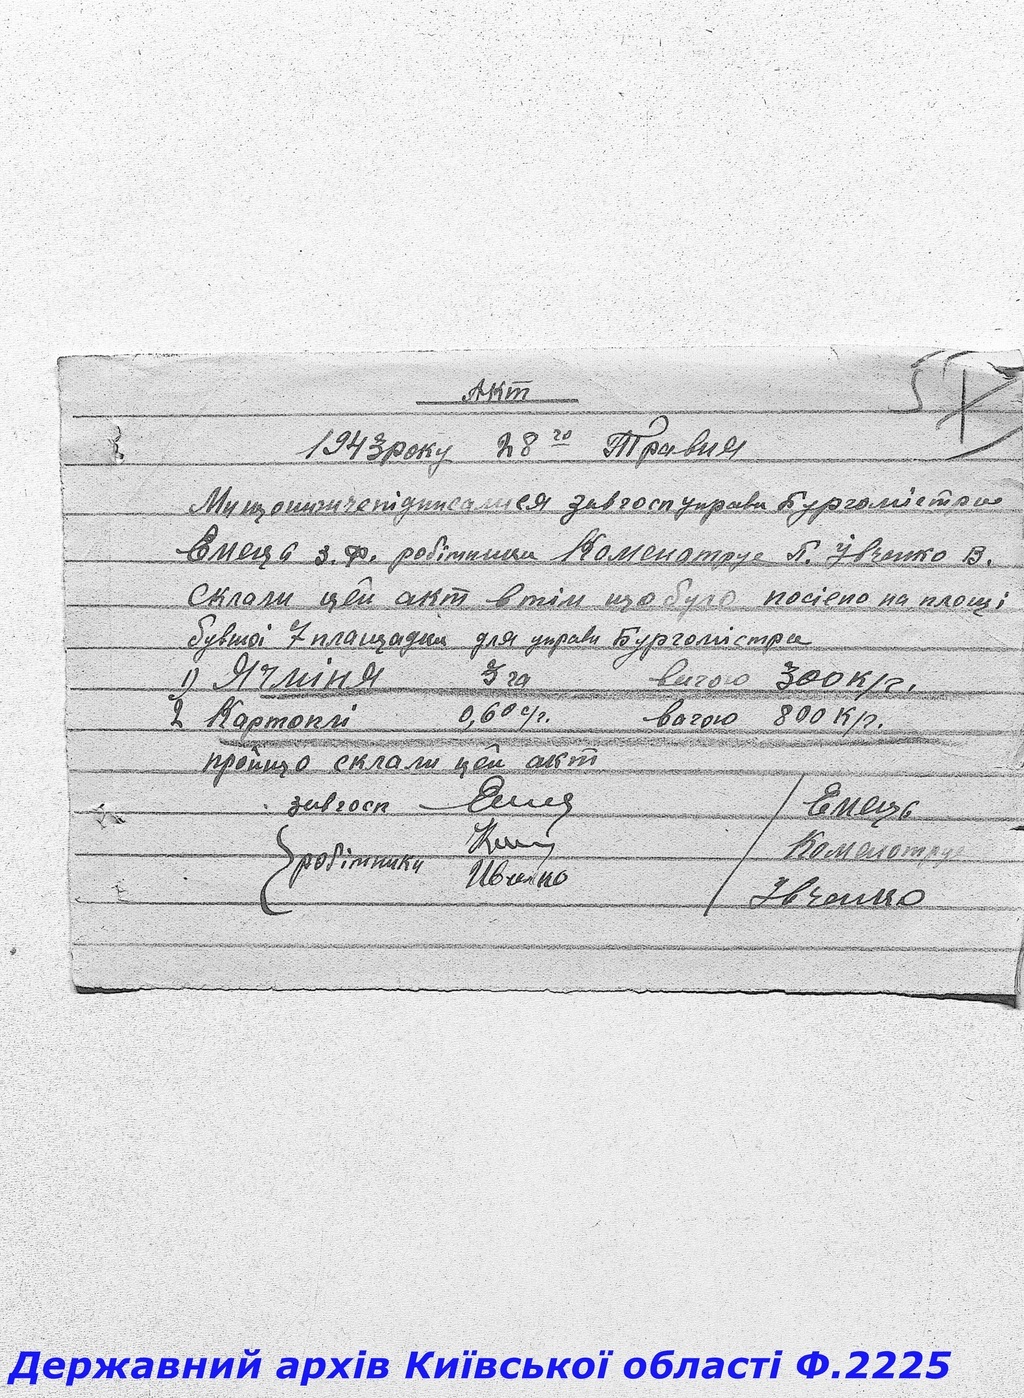 Акт
1943 року 28го Травня
Ми що нижче підписалися завгосп управи Бургомістра
Емець З.Ф. робітники Каменотрус П. Івченко В.
склали цей акт втім що було посіено на площі
бувшої 7 площадки для управи Бургомістра
1) Ячміня 3 га вагою 300 к/г.
2 Картоплі 0,60 с/г. вагою 800 к/г.
пройщо склали цей акт
завгосп Емец / Емець
робітники Каменотрус
Ивченко Івченко
Державний архів Київської області Ф.2225